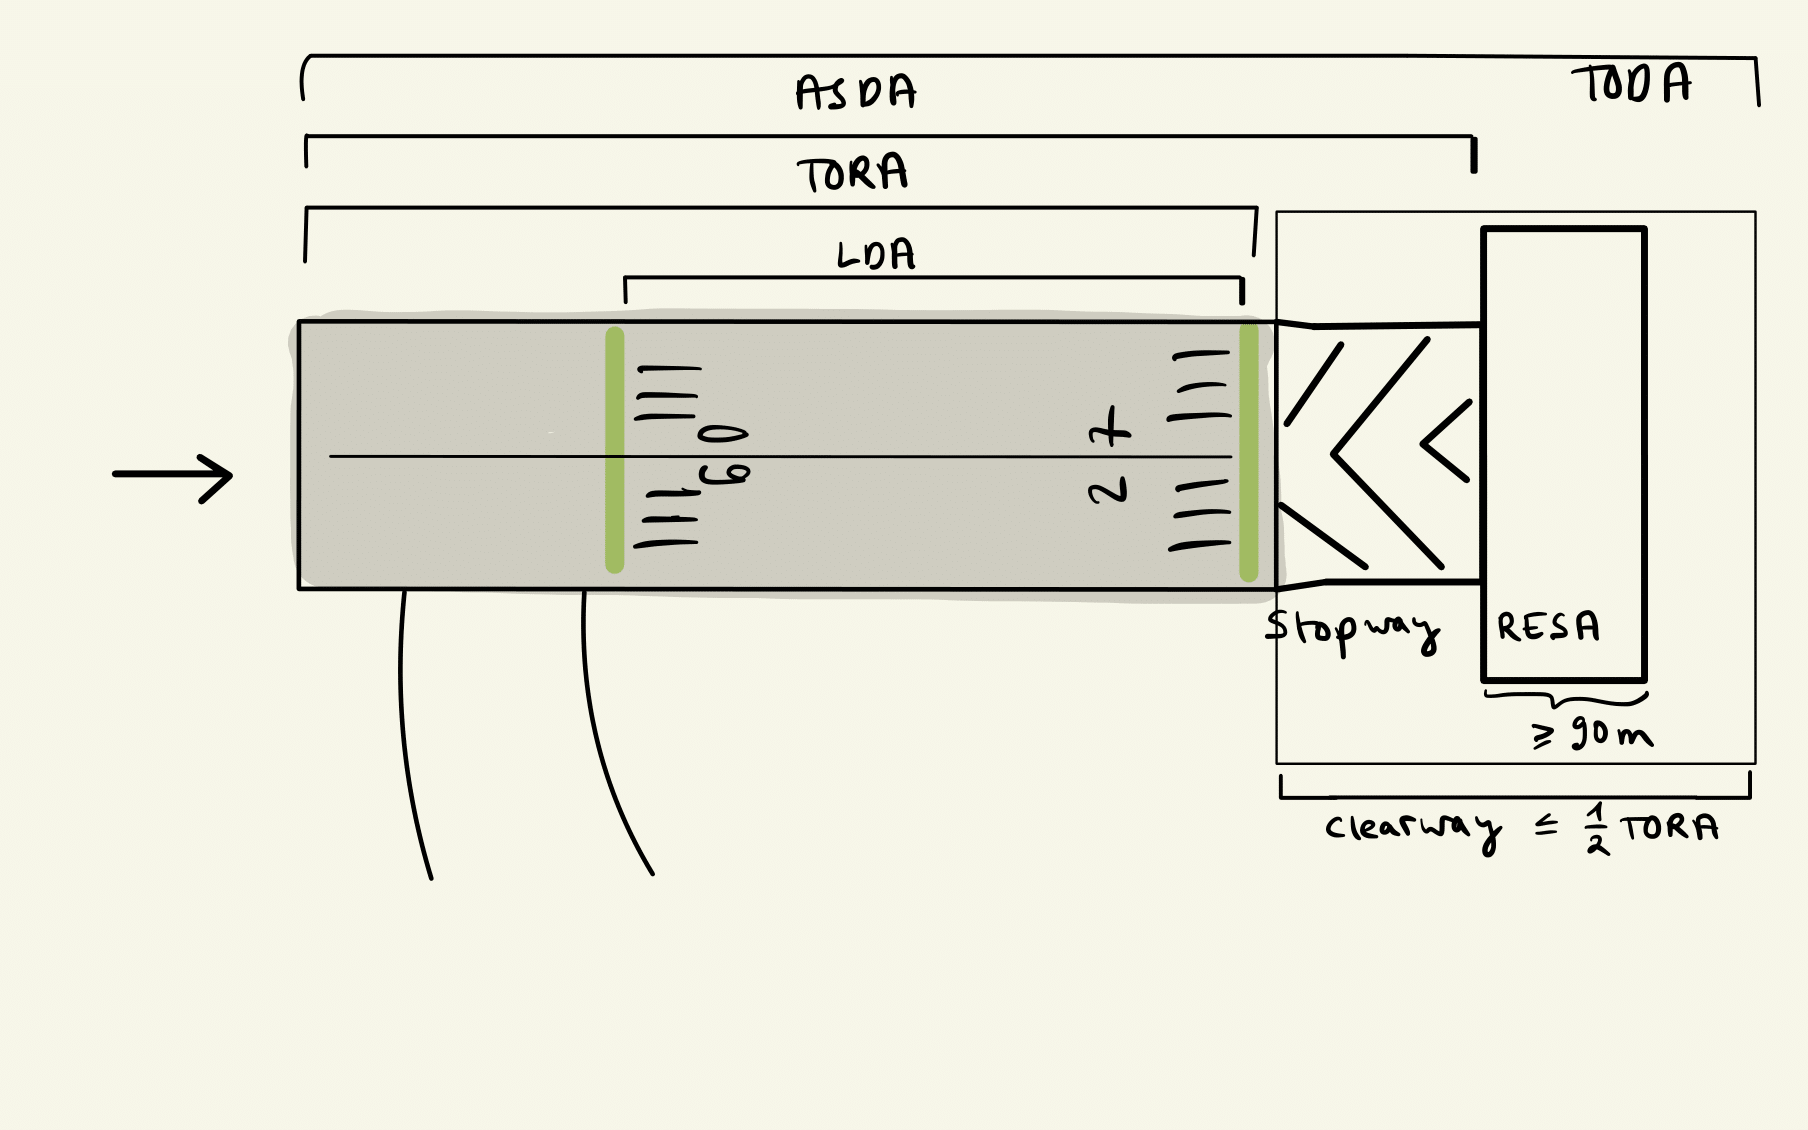 ASDA
TODA
TORA
LDA
09
27
Stopway
RESA
≥ 90m
Clearway ≤ 1/2 TORA